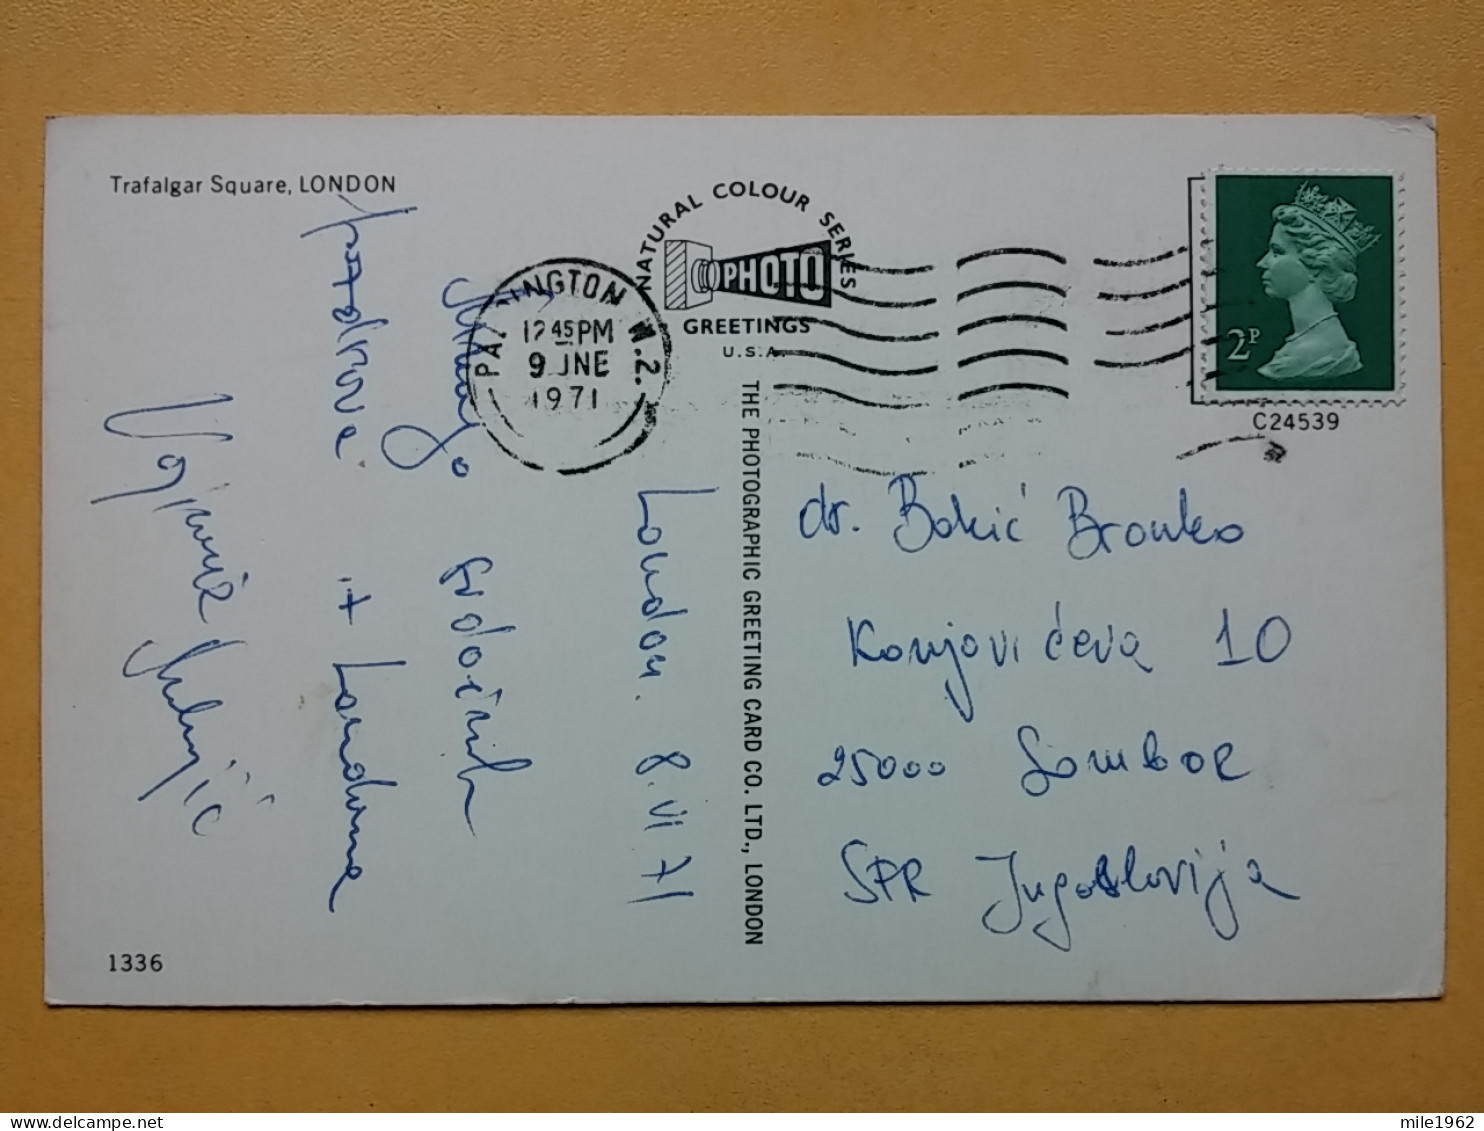 Trafalgar Square, LONDON
NATURAL COLOUR SERIES
PHOTO
GREETINGS
U.S.A.
PADDINGTON W.2.
12 45 PM
9 JNE
1971
2P
C24539
THE PHOTOGRAPHIC GREETING CARD CO. LTD., LONDON
London. 8. VI 71
Mnogo srdačnih
pozdrava iz Londona
dr. Bakić Branko
Konjovićeva 10
25000 Sombor
SFR Jugoslavija
1336
mile1962